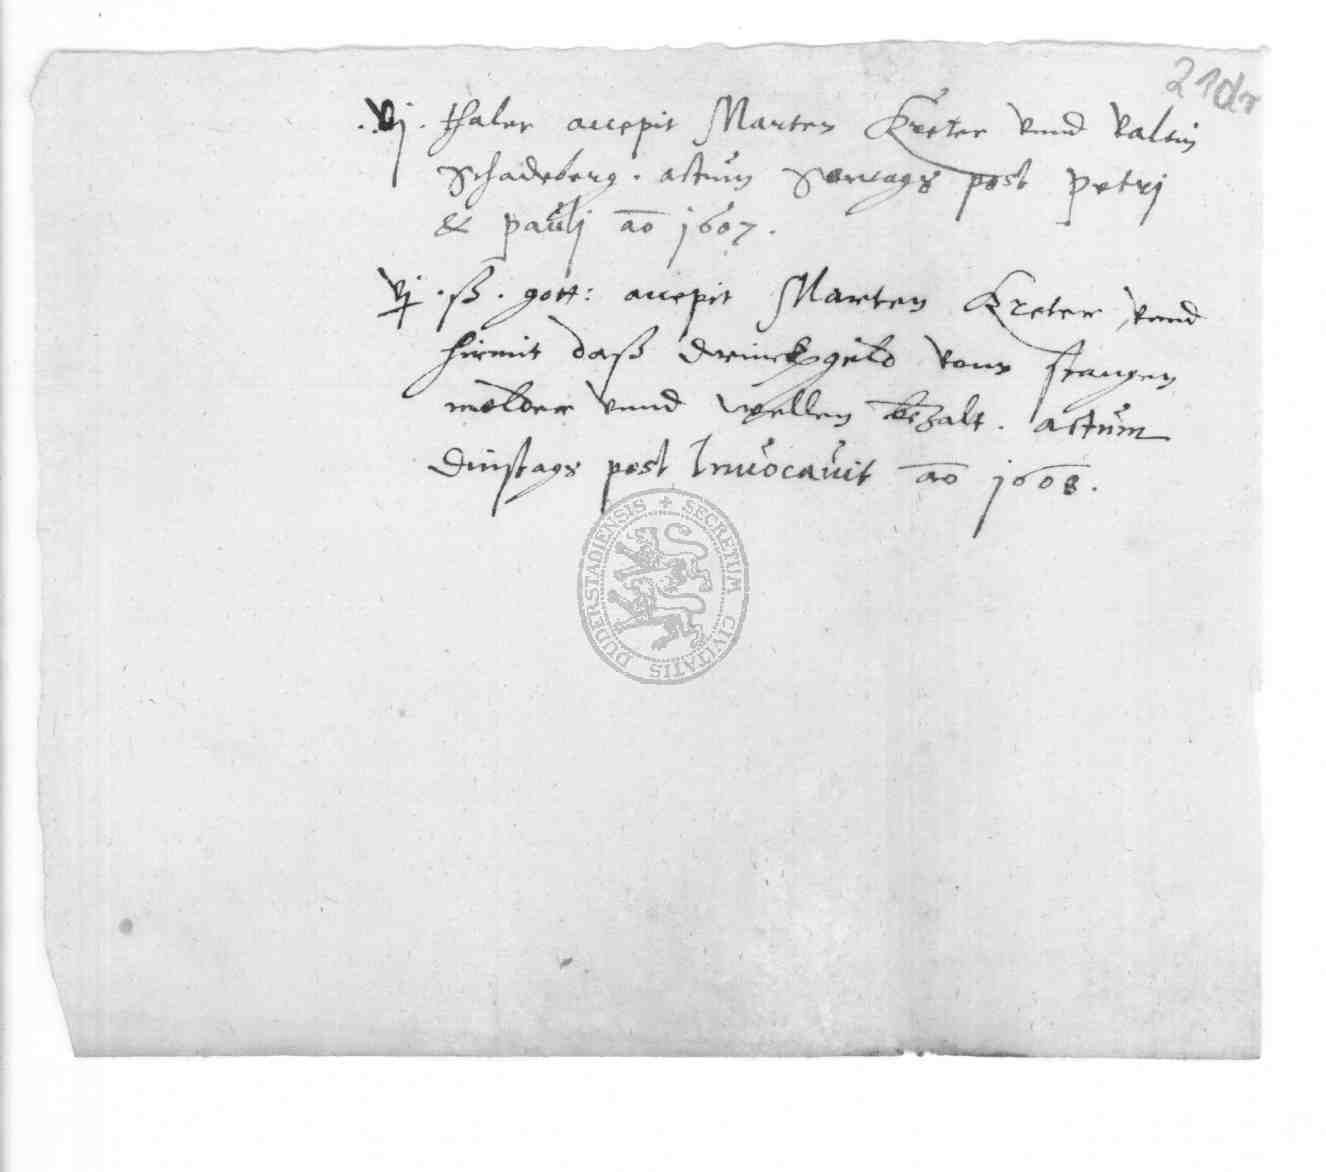 21dr
.vj. thaler accepit Marten Kreter vnnd Valtin
Schadeberg. actum Sontags post Petrj
& paulj ao 1607.
vj. ß. gott: accepit Marten Kreter, vnnd
hirmit daß drinckgelt vonn stangen
wellen bezalt. actum
Dinstags post Invocavit ao 1608.
SECRETUM CIVITATIS DUDERSTADIENSIS